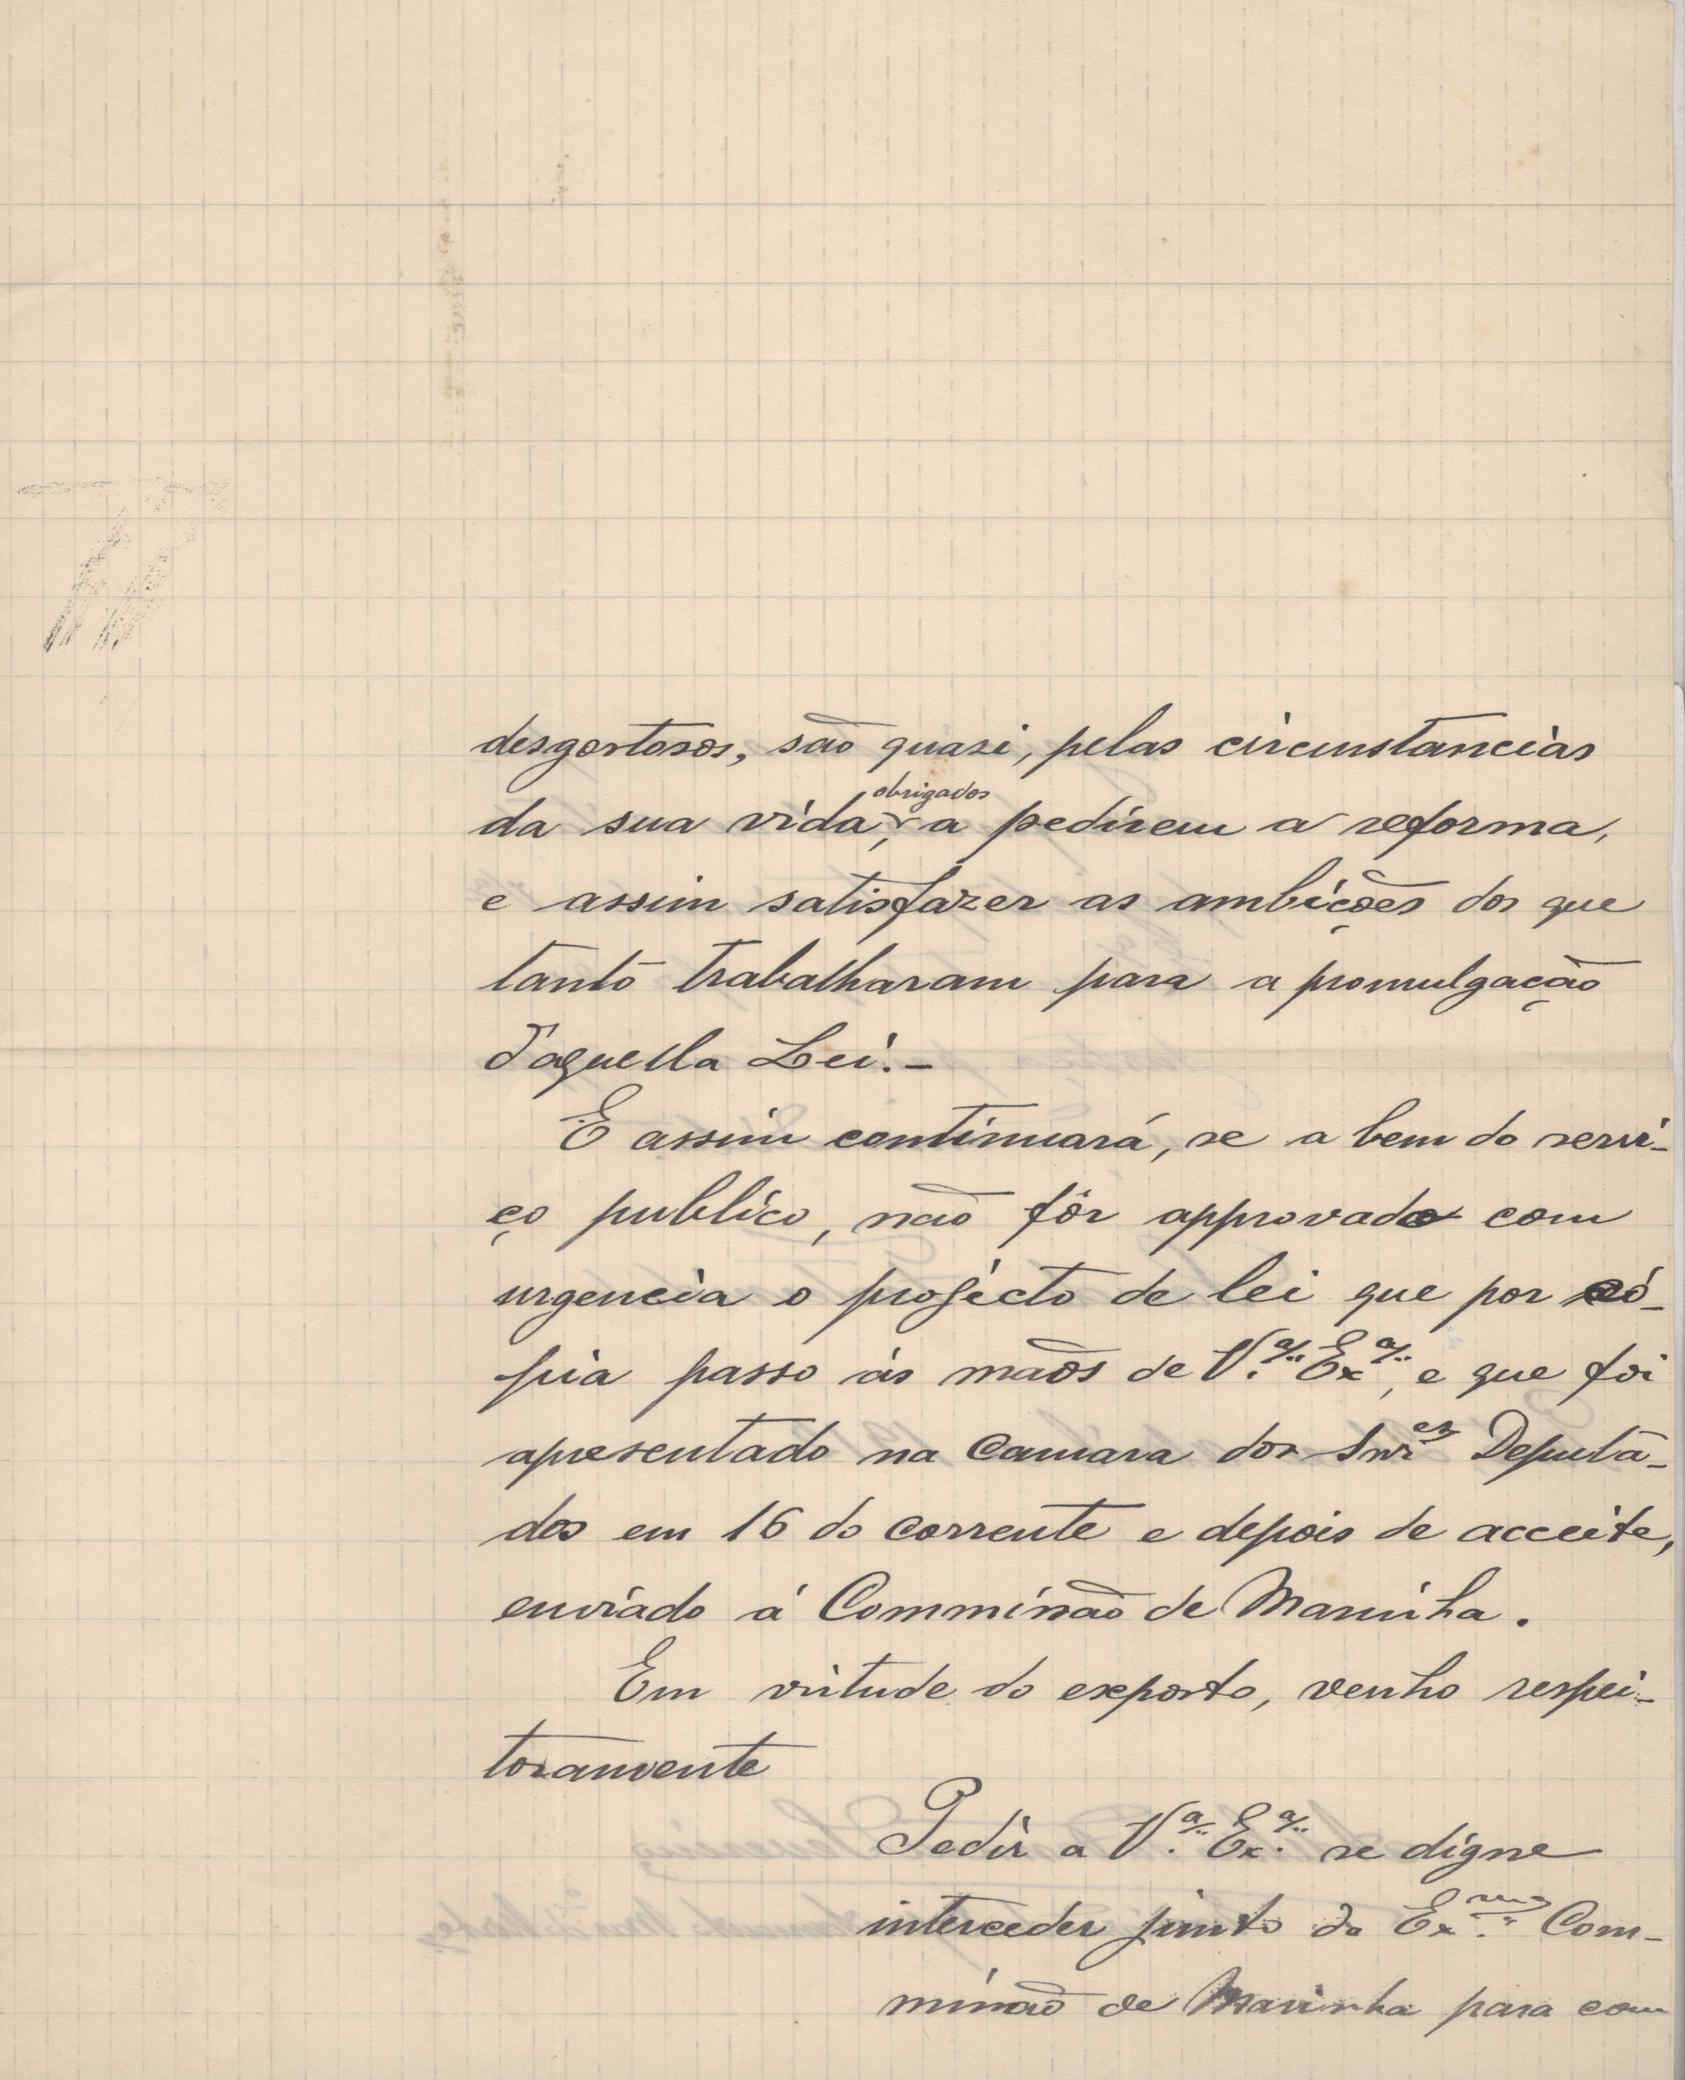 desgostosos, são quasi, pelas circunstancias
da sua vida, obrigados a pedirem a reforma,
e assim satisfazer as ambições dos que
tanto trabalharam para a promulgação
d'aquella Lei.-
E assim continuará, se a bem do servi-
ço publico, não fôr approvado com
urgencia o projecto de lei que por có-
pia passo ás mãos de V.ª Ex.ª, e que foi
apresentado na Camara dos Snr.es Deputa-
dos em 16 do corrente e depois de acceite,
enviado á Commissão de Marinha.
Em virtude do exposto, venho respei-
tosamente
Pedir a V.ª Ex.ª se digne
interceder junto da Ex.ma Com-
missão de Marinha para com